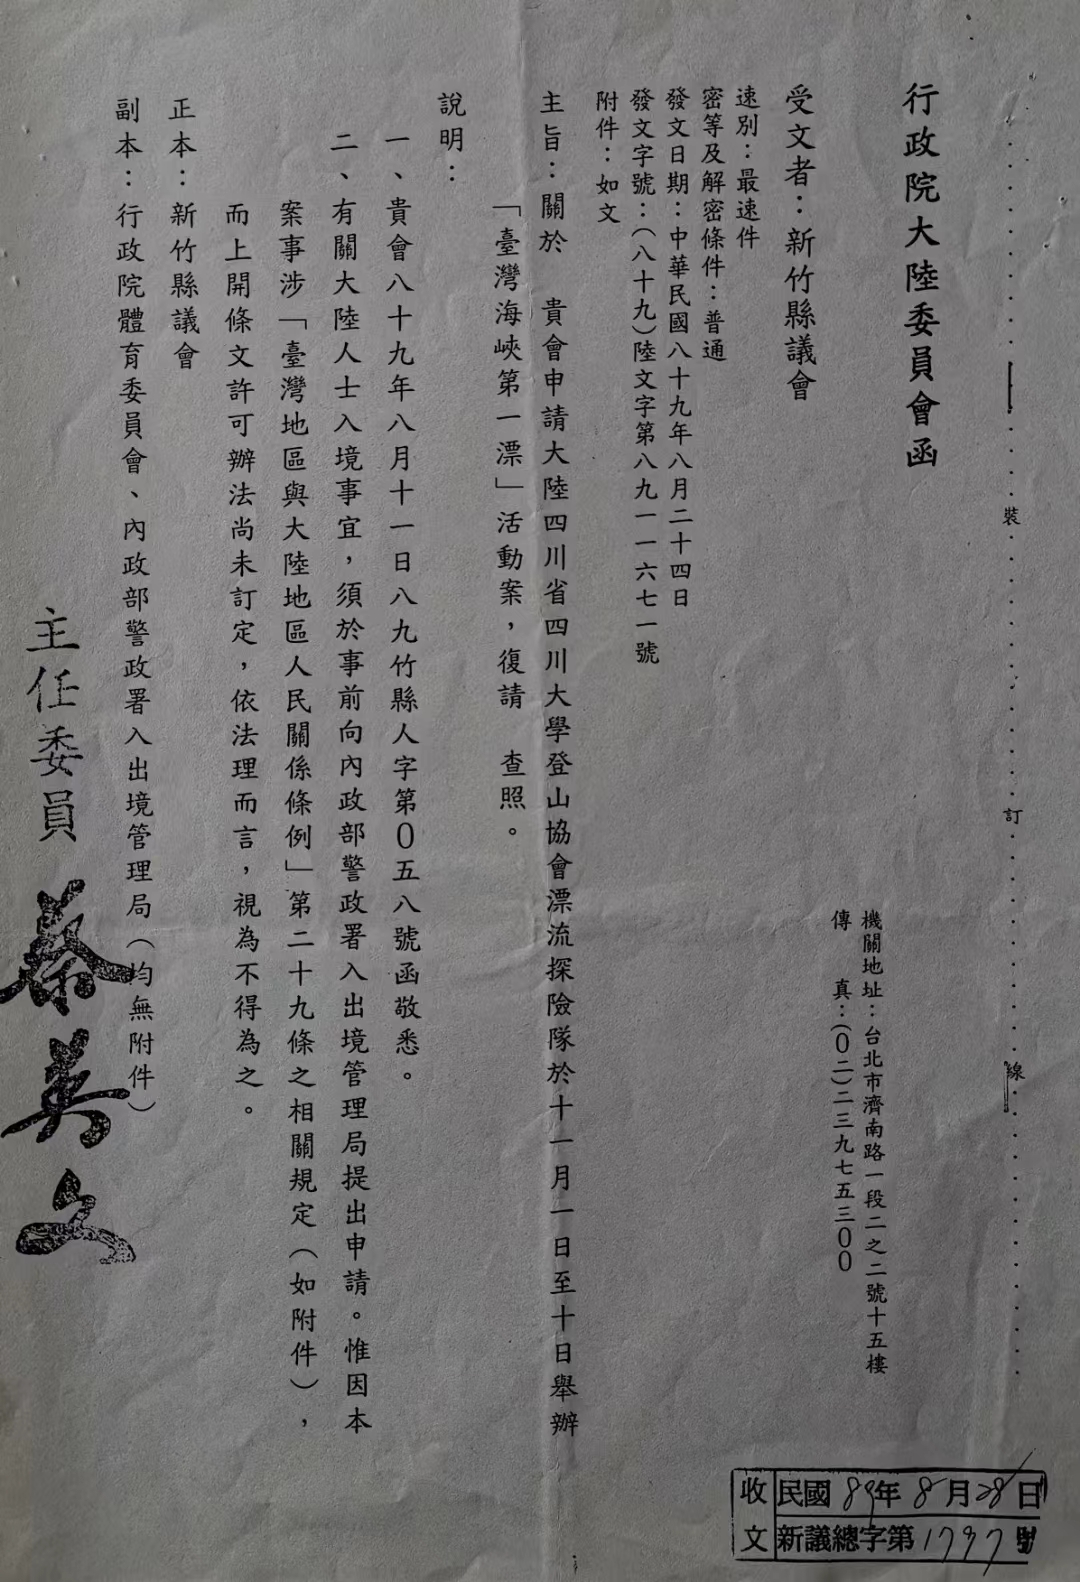 裝
訂
線
行政院大陸委員會函
機關地址：台北市濟南路一段二之二號十五樓
傳　　真：(0二)二三九七五三00
受文者：新竹縣議會
速別：最速件
密等及解密條件：普通
發文日期：中華民國八十九年八月二十四日
發文字號：(八十九)陸文字第八九一一六七一號
附件：如文
主旨：關於　貴會申請大陸四川省四川大學登山協會漂流探險隊於十一月一日至十日舉辦
「臺灣海峽第一漂」活動案，復請　查照。
說明：
一、貴會八十九年八月十一日八九竹縣人字第0五八號函敬悉。
二、有關大陸人士入境事宜，須於事前向內政部警政署入出境管理局提出申請。惟因本
案事涉「臺灣地區與大陸地區人民關係條例」第二十九條之相關規定（如附件），
而上開條文許可辦法尚未訂定，依法理而言，視為不得為之。
正本：新竹縣議會
副本：行政院體育委員會、內政部警政署入出境管理局（均無附件）
主任委員 蔡英文
收文
民國89年8月28日
新議總字第1797號